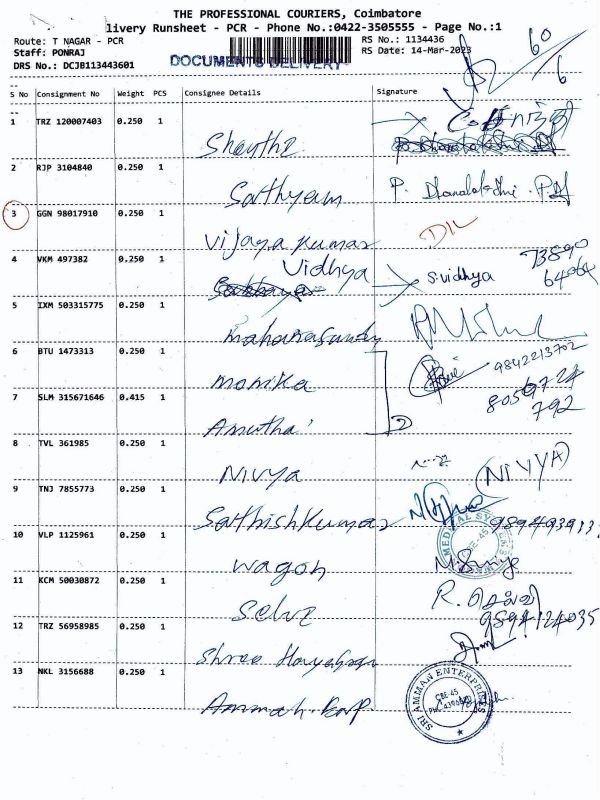 THE PROFESSIONAL COURIERS, Coimbatore
livery Runsheet - PCR - Phone No.:0422-3505555 - Page No.:1
Route: T NAGAR - PCR RS No.: 1134436
Staff: PONRAJ RS Date: 14-Mar-2023
DRS No.: DCJB113443601 DOCUMENTS DELIVERY
60
6
S No Consignment No Weight PCS Consignee Details Signature
1 TRZ 120007403 0.250 1
2 RJP 3104840 0.250 1
Sathyam P. Dhanalakshmi
3 GGN 98017910 0.250 1
Vijaya Kumar DIL
4 VKM 497382 0.250 1 73890
Vidhya S.vidhya 64064
5 IXM 503315775 0.250 1
6 BTU 1473313 0.250 1
Monika 9842213702
7 SLM 315671646 0.415 1
Amutha 792
8 TVL 361985 0.250 1
Nivya (NIVYA)
9 TNJ 7855773 0.250 1
Sathishkumar
10 VLP 1125961 0.250 1
Wagon
11 KCM 50030872 0.250 1
Selvi R. செல்வி
9894124035
12 TRZ 56958985 0.250 1
Shree
13 NKL 3156688 0.250 1
SRI AMMAN ENTERPRISES
CBE-45